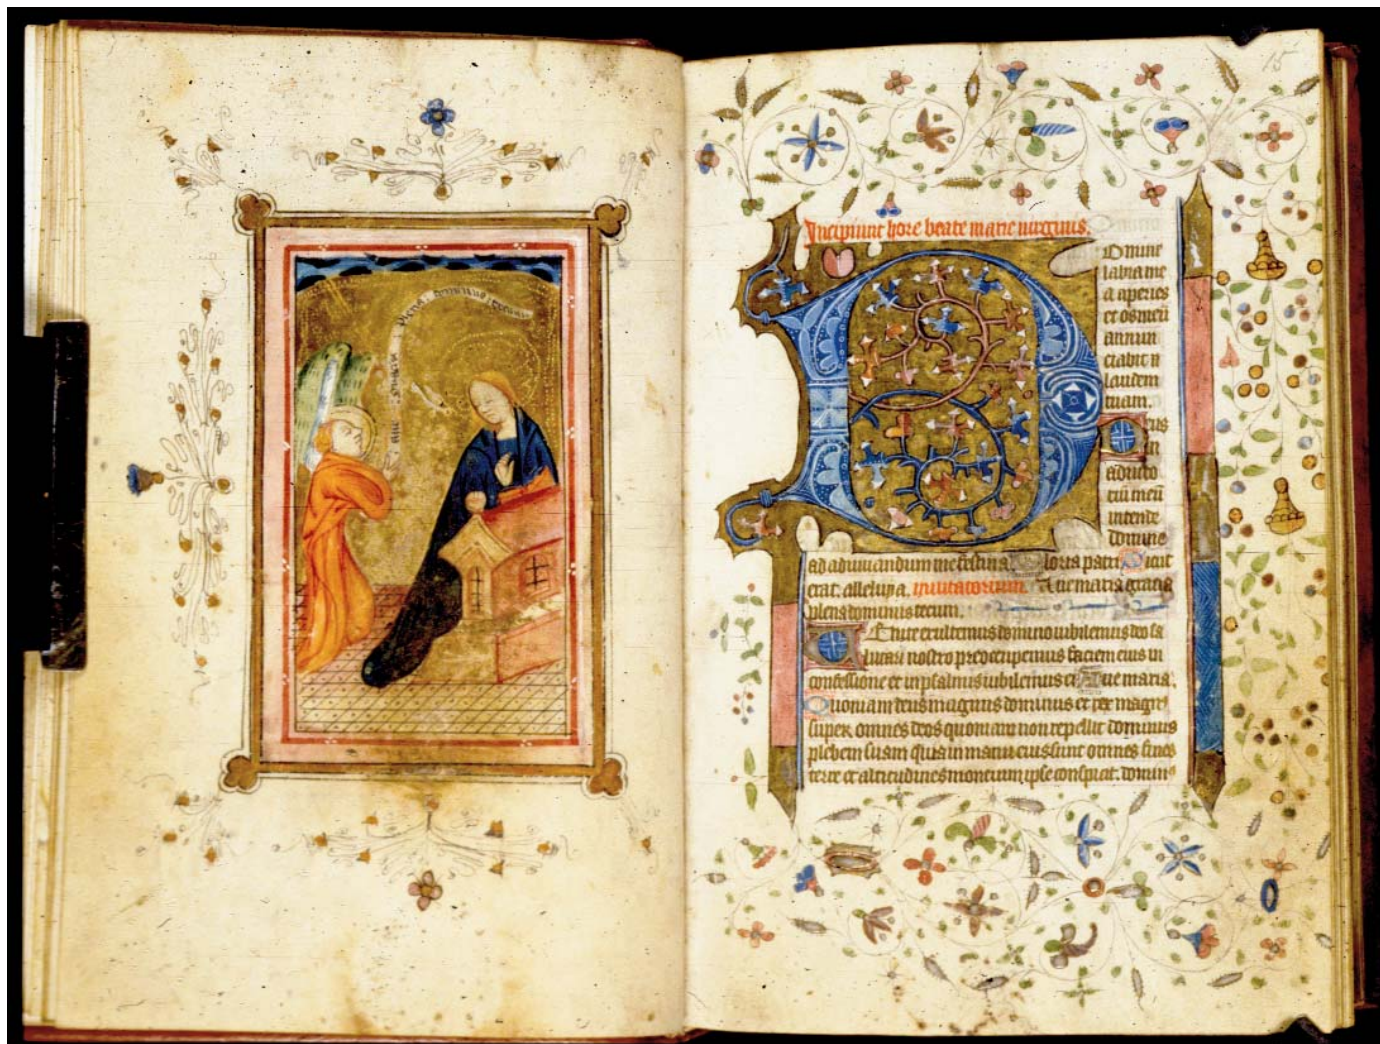 aue gracia plena dominus tecum
15
Incipiunt hore beate marie uirginis.
Domine
labia me
a aperies
et os meū
annun
ciabit
laudem
tuam.
Deus
in
adiuto
riū meū
intende
domine
ad adiuuandum me festina Gloria patri Sicut
erat. alleluya. Inuitatorium. Aue maria gracia
plena dominus tecum.
Uenite exultemus domino iubilemus deo sa
lutari nostro preoccupemus faciem eius in
confessione et in psalmis iubilemus ei Aue maria.
Quoniam deus magnus dominus et rex magn
super omnes deos quoniam non repellit dominus
plebem suam quia in manu eius sunt omnes fines
terre et altitudines moncium ipse conspicit. domin